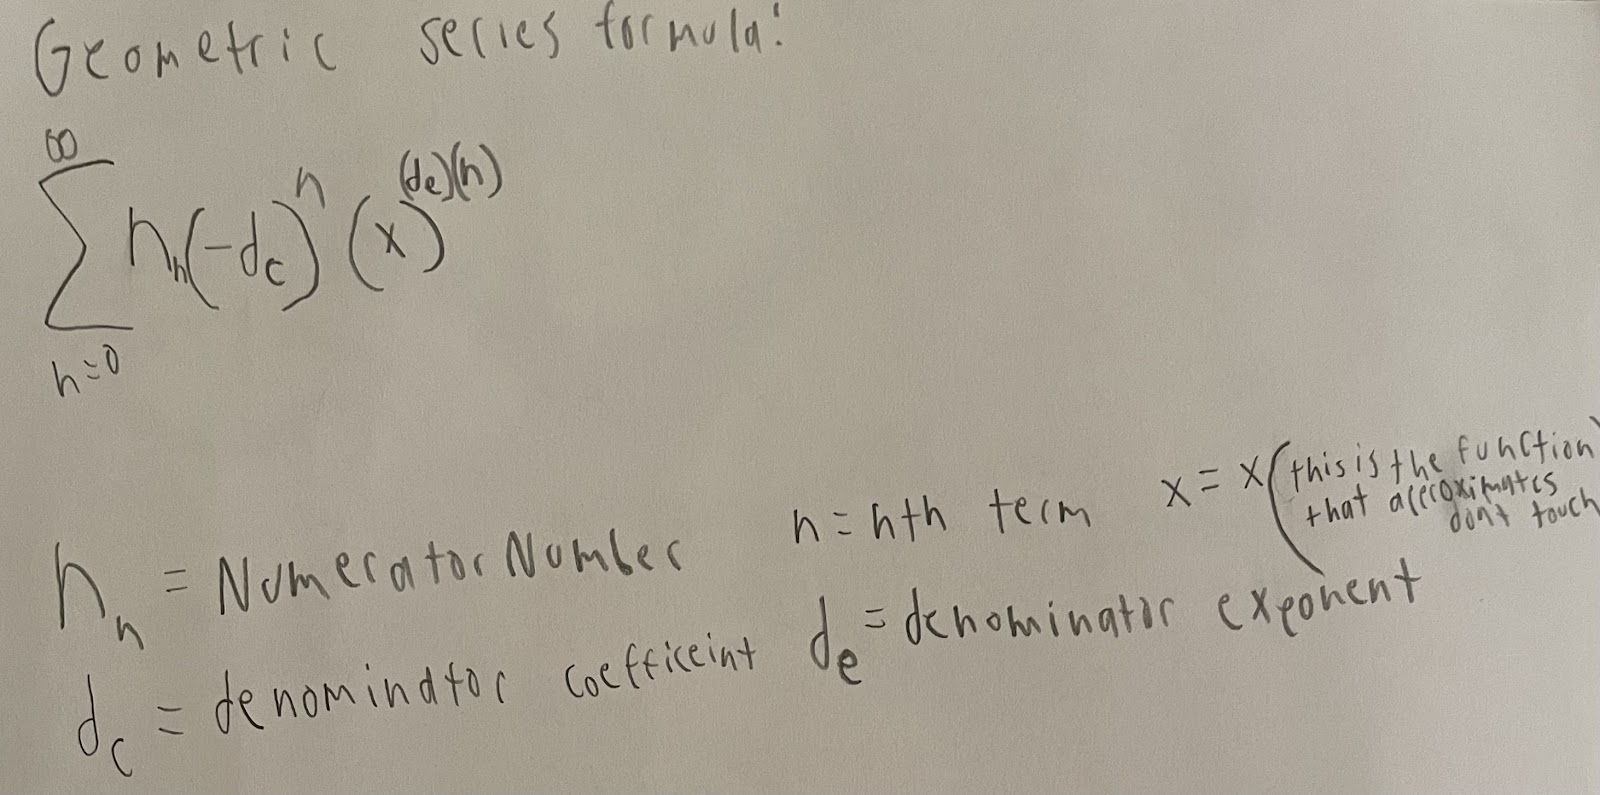 Geometric series formula:
∞
∑ n_n(-d_c)^n (x)^(d_e)(n)
n=0
n_n = Numerator Number n = nth term x = x (this is the function
that approximates
dont touch
d_c = denominator coefficeint d_e = denominator exponent